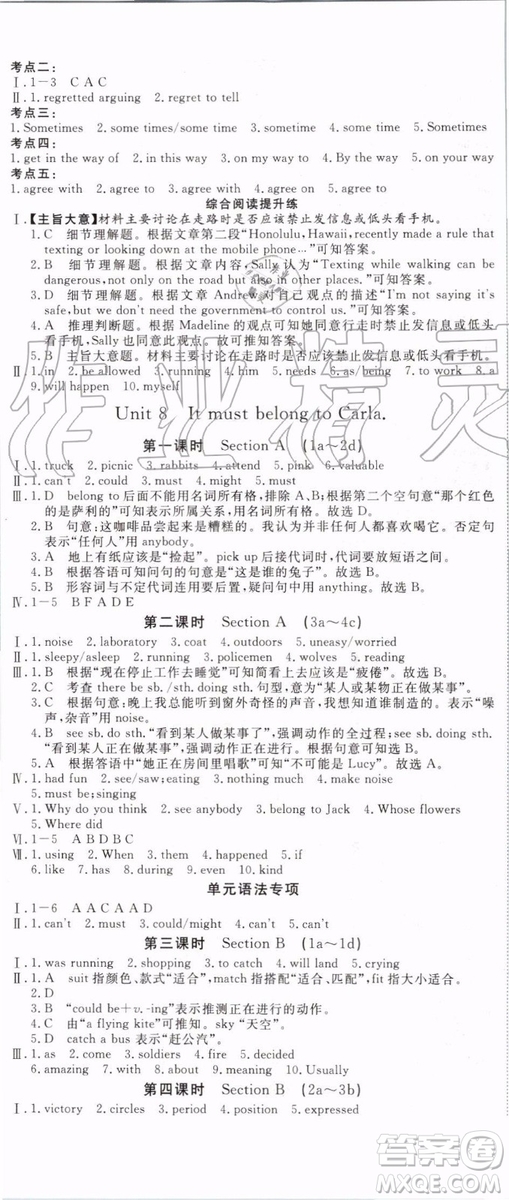 考点二：
Ⅰ. 1－3 CAC
Ⅱ. 1. regretted arguing 2. regret to tell
考点三：
1. Sometimes 2. some times/some time 3. sometime 4. Sometimes
考点四：
1. get in the way of 2. in this way 3. on my way to 4. By the way 5. on your way
考点五：
1. agree with 2. agree with 3. agree on 4. agree with 5. agree to
综合阅读提升练
Ⅰ.【主旨大意】材料主要讨论在走路时是否应该禁止发信息或低头看手机。
1. C 细节理解题。根据文章第二段“Honolulu, Hawaii, recently made a rule that
texting or looking down at the mobile phone...”可知答案。
2. B 细节理解题。根据文章内容，Sally 认为“Texting while walking can be
dangerous, not only on the road but also in other places.”可知答案。
3. D 细节理解题。根据文章 Andrew 对自己观点的描述“I'm not saying it's
safe, but we don't need the government to control us.”可知答案。
4. A 推理判断题。根据 Madeline 的观点可知她同意行走时禁止发信息或低头
看手机，Sally 也同意此观点。故可推知答案。
5. B 主旨大意题。材料主要讨论在走路时是否应该禁止发信息或低头看手机。
Ⅱ. 1. in 2. be allowed 3. running 4. him 5. needs 6. as/being 7. to work 8. a
9. will happen 10. myself
Unit 8 It must belong to Carla.
第一课时 Section A (1a～2d)
Ⅰ. 1. truck 2. picnic 3. rabbits 4. attend 5. pink 6. valuable
Ⅱ. 1. can't 2. must 3. could 4. might 5. must
Ⅲ. 1. D belong to 后面不能用名词所有格，排除 A、B、C，根据第二个空句意“那个红色
的是萨利的”可知表示所属关系，用名词所有格。故选 D。
2. B 句意：这咖啡品尝起来是糟糕的。我认为没有任何人都喜欢喝它。否定句中
表示“任何人”用 anybody。故选 B。
3. A 地上有纸应该是“捡起”。pick up 后接代词时，代词要放短语中间。故选 A。
4. B 根据答语可知问句的句意是“这是谁的兔子”。故选 B。
5. B 形容词与不定代词连用要后置，疑问句中用 anything。故选 B。
Ⅳ. 1－5 BFADE
第二课时 Section A (3a～4c)
Ⅰ. 1. noise 2. laboratory 3. coat 4. outdoors 5. uneasy/worried
Ⅱ. 1. sleepy/asleep 2. running 3. policemen 4. wolves 5. reading
Ⅲ. 1. B 根据“现在停止工作去睡觉”可知简看起来应该是“疲倦”。故选 B。
2. C 考查 there be sb./sth. doing sth. 句型，意为“某人或某物正在做某事”。
3. C 根据句意：晚上我总能听到窗外奇怪的声音，我想知道是谁制造的。表示“噪
声，杂音”用 noise。
4. B see sb. do sth. “看到某人做某事了”，强调动作的全过程；see sb. doing sth.
“看到某人正在做某事”，强调动作正在进行。故选 B。
5. A 根据答语中“她正在房间里唱歌”可知“不可能是 Lucy”。故选 A。
Ⅳ. 1. had fun 2. see/saw; eating 3. nothing much 4. make noise
5. must be; singing
Ⅴ. 1. Why do you think 2. see anybody 3. belong to Jack 4. Whose flowers
5. Where did
Ⅵ. 1－5 ABDBC
Ⅶ. 1. using 2. When 3. them 4. which 5. if
6. like 7. has 8. because 9. to control 10. expensive
单元语法专项
Ⅰ. 1－6 AACAAD
Ⅱ. 1. can't 2. must 3. could/might 4. must 5. can't
第三课时 Section B (1a～1d)
Ⅰ. 1. was running 2. shopping 3. to catch 4. will land 5. crying
Ⅱ. 1. A suit 指颜色、款式“适合”，match 指搭配“适合、匹配”，fit 指大小适合。
2. D
3. B “could be＋v. -ing”表示推测正在进行的动作。
4. C 由“a flying kite”可推知。sky “天空”。
5. D catch a bus 表示“赶公汽”。
Ⅲ. 1. as 2. come 3. soldiers 4. fire 5. decided
6. amazing 7. with 8. about 9. meaning 10. Usually
第四课时 Section B (2a～3b)
Ⅰ. 1. victory 2. circles 3. period 4. position 5. expressed
作业精灵
答案圈
MXQE.COM